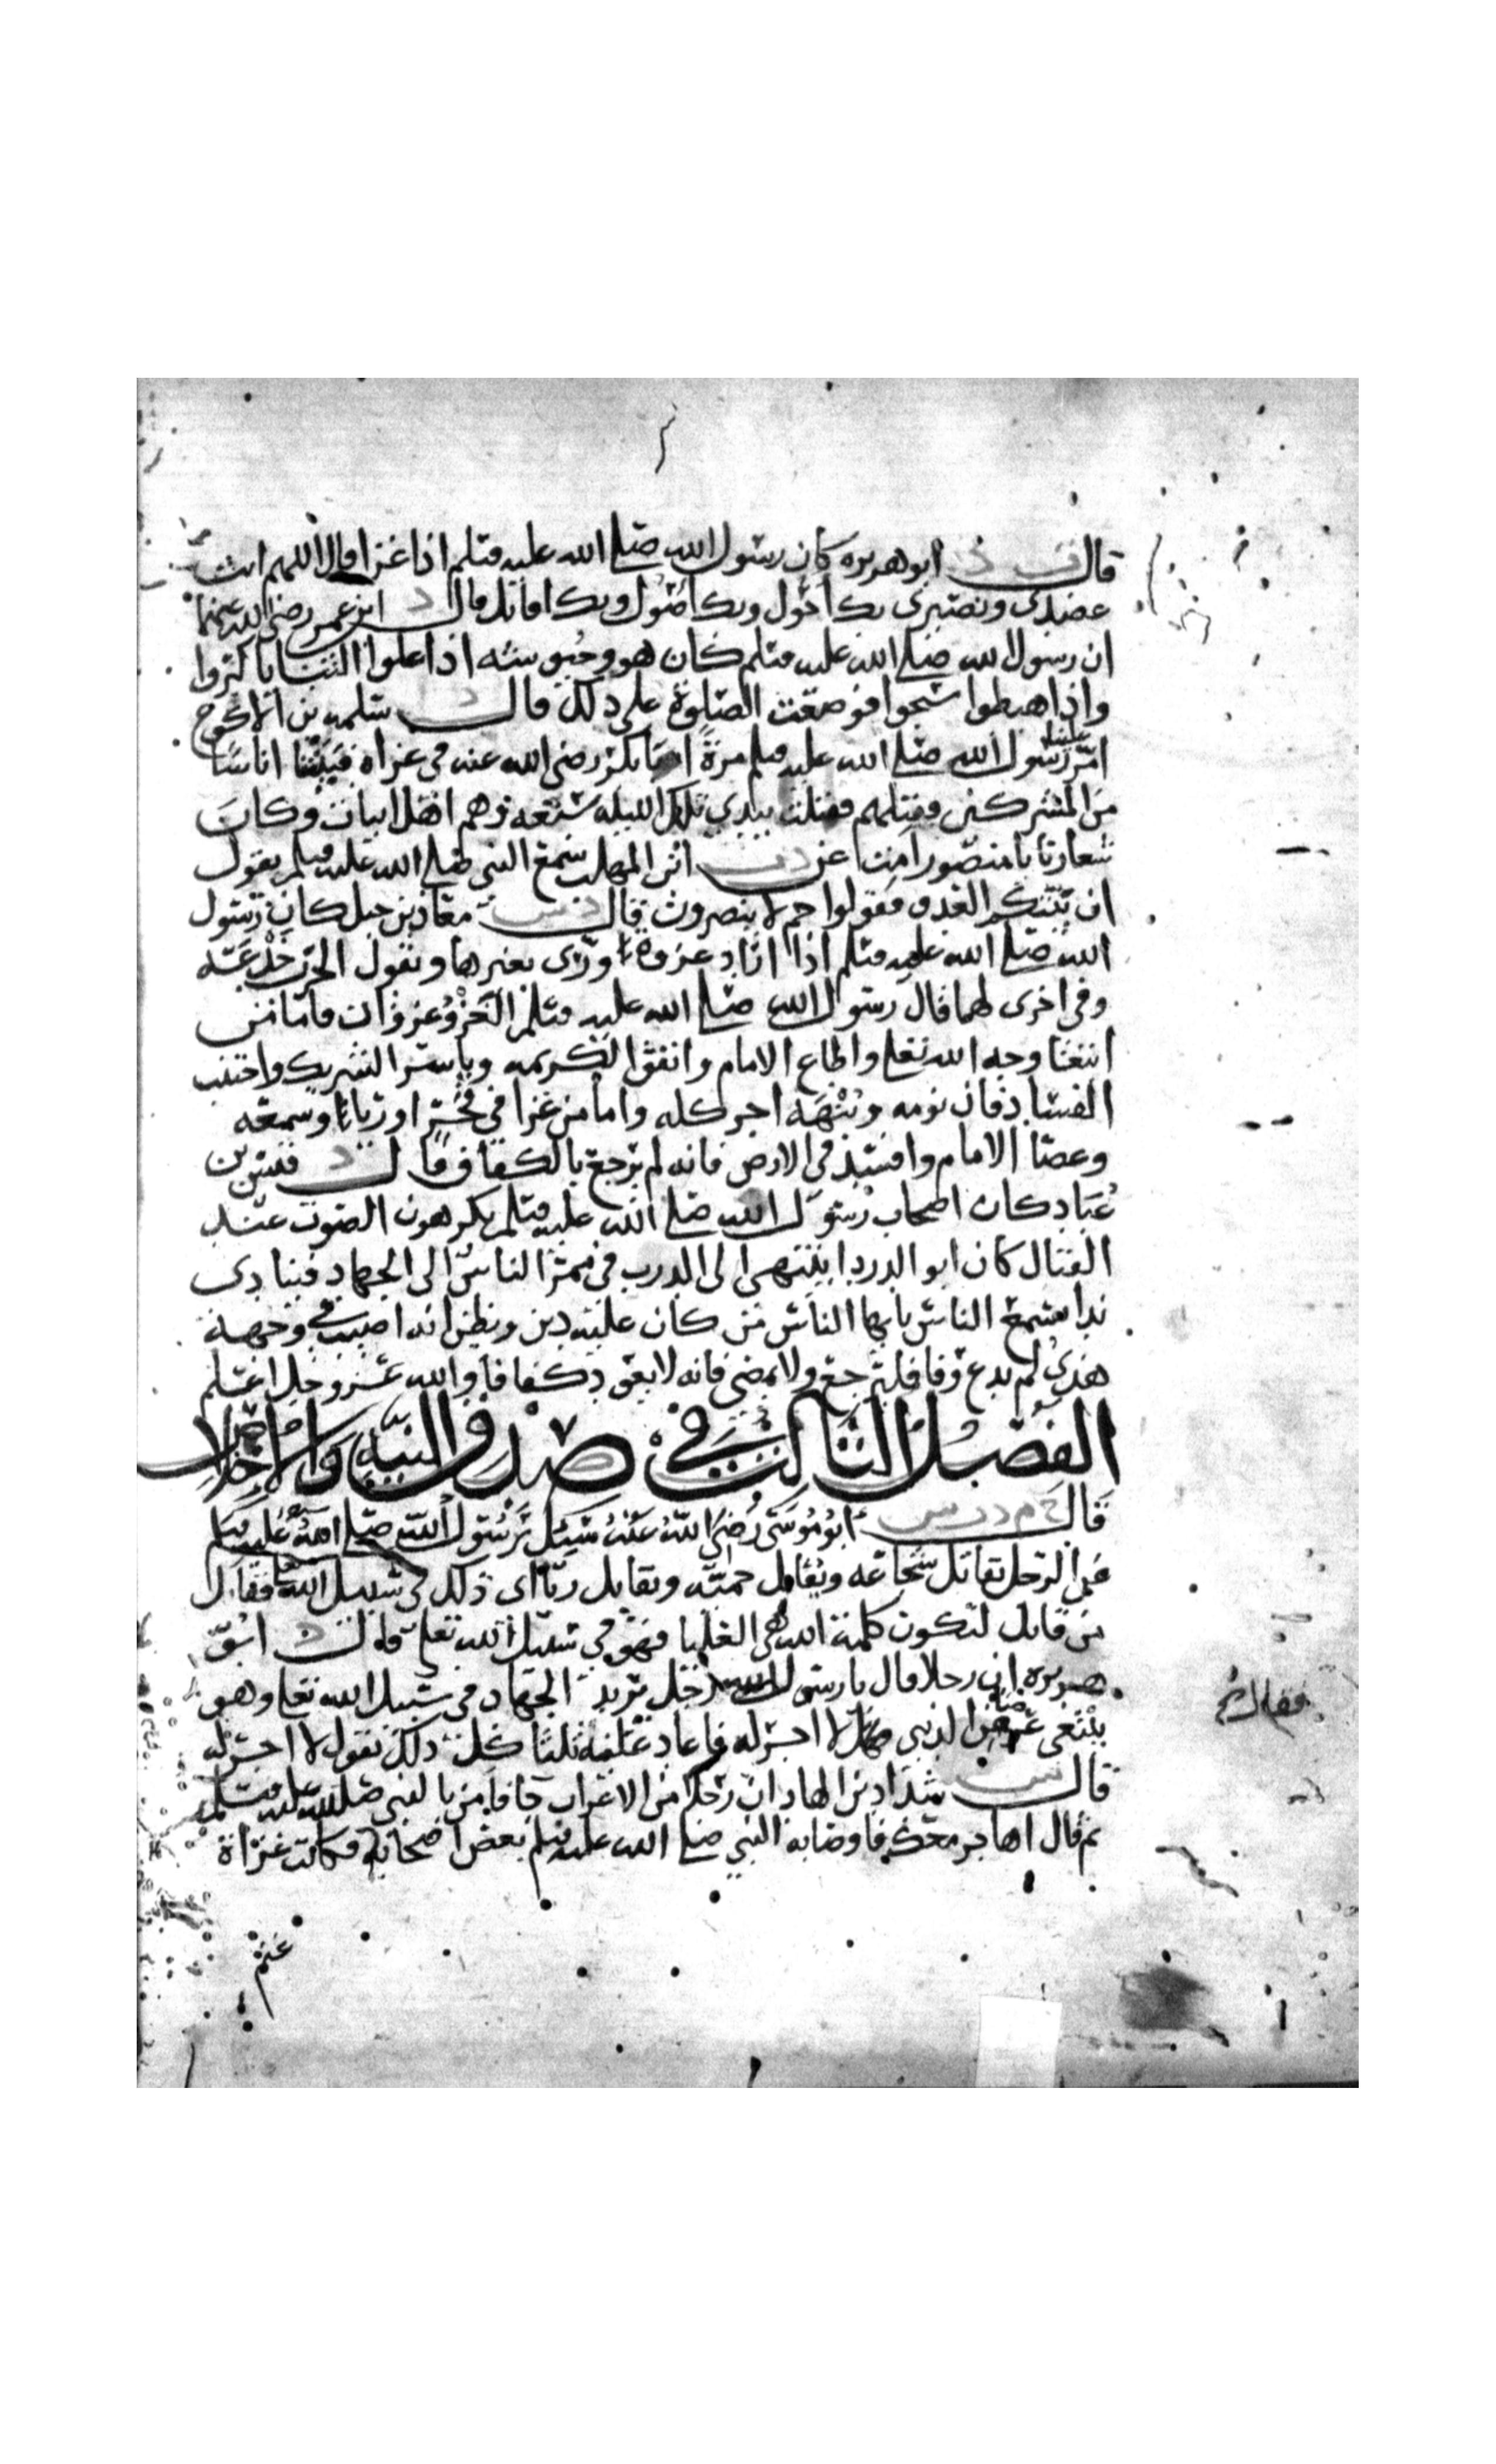 قال ت د ابو هريره كان رسول الله صلى الله عليه وسلم اذا غزا قال اللهم انت
عضدي ونصيري بك احول وبك اصول وبك اقاتل قال د ابن عمر رضي الله عنهما
ان رسول الله صلى الله عليه وسلم كان هو وجيوشه اذا علوا الثنايا كبروا
واذا هبطوا سبحوا فوضعت الصلوة على ذلك قال د سلمه بن الاكوع
امر علينا رسول الله صلى الله عليه وسلم مرة ابا بكر رضي الله عنه في غزاه فبيتنا اناسا
من المشركين فقتلهم فقتلت بيدي تلك الليله سبعه وهم اهل ابيات وكان
شعارنا يا منصور امت عن د ت ابن المهلب سمع النبي صلى الله عليه وسلم يقول
ان بيتكم العدو فقولوا حم لا ينصرون قال د س معاذ بن جبل كان رسول
الله صلى الله عليه وسلم اذا اراد غزوة ورى بغيرها ويقول الحرب خدعه
وفي اخرى لهما قال رسول الله صلى الله عليه وسلم الغزو غزوان فاما من
ابتغا وجه الله تعلى واطاع الامام وانفق الكريمه وياسر الشريك واجتنب
الفساد فان نومه ونبهه اجر كله واما من غزا في فخرا ورياء وسمعه
وعصا الامام وافسد في الارض فانه لم يرجع بالكفاف قال د قيس بن
عباد كان اصحاب رسول الله صلى الله عليه وسلم يكرهون الصوت عند
القتال كان ابو الدردا ينتهي الى الدرب في ممر الناس الى الجهاد فينادي
ندا يسمع الناس يايها الناس من كان عليه دين ويظن انه اصيب في وجهه
هذي لم يدع وفا فليرجع ولا يمضي فانه لا يعود كفافا والله عز وجل اعلم
الفصل الثالث في صدق النيه والاخلاص
قال خ م د ت س ابو موسى رضي الله عنه سيل رسول الله صلى الله عليه وسلم
عن الرجل يقاتل شجاعه ويقاتل حميه ويقاتل رياء اي ذلك في سبيل الله فقال
من قاتل لتكون كلمة الله هي العليا فهو في سبيل الله تعلى قال د ابو
هريره ان رجلا قال يا رسول الله رجل يريد الجهاد في سبيل الله تعلى وهو
يبتغي عرضا من الدنيا فقال لا اجر له فاعاد عليه ثلثا كل ذلك يقول لا اجر له
قال س شداد بن الهاد ان رجلا من الاعراب جا فامن بالنبي صلى الله عليه وسلم
ثم قال اهاجر معك فاوصا به النبي صلى الله عليه وسلم بعض اصحابه فكانت غزاة
غنم